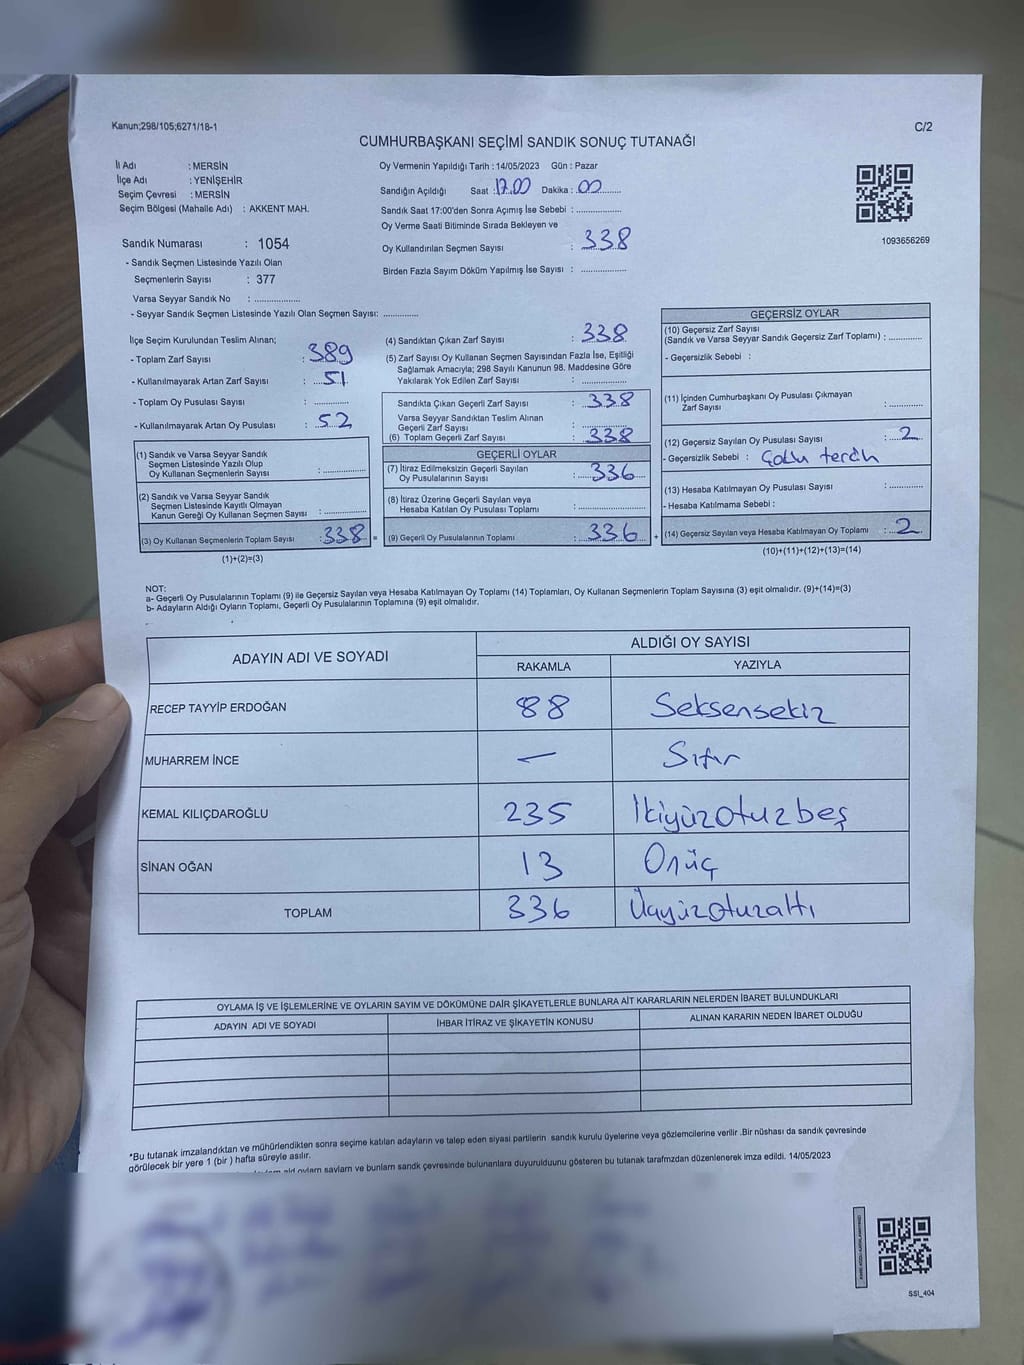 Kanun;298/105;6271/18-1
C/2
CUMHURBAŞKANI SEÇİMİ SANDIK SONUÇ TUTANAĞI
İl Adı : MERSİN
İlçe Adı : YENİŞEHİR
Seçim Çevresi : MERSİN
Seçim Bölgesi (Mahalle Adı) : AKKENT MAH.
Oy Vermenin Yapıldığı Tarih : 14/05/2023 Gün : Pazar
Sandığın Açıldığı Saat : 17.00 Dakika : 00
Sandık Saat 17:00'den Sonra Açımış İse Sebebi : ..............
Oy Verme Saati Bitiminde Sırada Bekleyen ve
Oy Kullandırılan Seçmen Sayısı : 338
Birden Fazla Sayım Döküm Yapılmış İse Sayısı : ..............
1093656269
Sandık Numarası : 1054
- Sandık Seçmen Listesinde Yazılı Olan
Seçmenlerin Sayısı : 377
Varsa Seyyar Sandık No : ..............
- Seyyar Sandık Seçmen Listesinde Yazılı Olan Seçmen Sayısı: ..............
İlçe Seçim Kurulundan Teslim Alınan;
- Toplam Zarf Sayısı : 389
- Kullanılmayarak Artan Zarf Sayısı : 51
- Toplam Oy Pusulası Sayısı : ..............
- Kullanılmayarak Artan Oy Pusulası : 52
(1) Sandık ve Varsa Seyyar Sandık
Seçmen Listesinde Yazılı Olup
Oy Kullanan Seçmenlerin Sayısı : ..............
(2) Sandık ve Varsa Seyyar Sandık
Seçmen Listesinde Kayıtlı Olmayan
Kanun Gereği Oy Kullanan Seçmen Sayısı : ..............
(3) Oy Kullanan Seçmenlerin Toplam Sayısı : 338 =
(1)+(2)=(3)
(4) Sandıktan Çıkan Zarf Sayısı : 338
(5) Zarf Sayısı Oy Kullanan Seçmen Sayısından Fazla İse, Eşitliği
Sağlamak Amacıyla; 298 Sayılı Kanunun 98. Maddesine Göre
Yakılarak Yok Edilen Zarf Sayısı : ..............
Sandıkta Çıkan Geçerli Zarf Sayısı : 338
Varsa Seyyar Sandıktan Teslim Alınan
Geçerli Zarf Sayısı : ..............
(6) Toplam Geçerli Zarf Sayısı : 338
GEÇERLİ OYLAR
(7) İtiraz Edilmeksizin Geçerli Sayılan
Oy Pusulalarının Sayısı : 336
(8) İtiraz Üzerine Geçerli Sayılan veya
Hesaba Katılan Oy Pusulası Toplamı : ..............
(9) Geçerli Oy Pusulalarının Toplamı : 336 +
GEÇERSİZ OYLAR
(10) Geçersiz Zarf Sayısı
(Sandık ve Varsa Seyyar Sandık Geçersiz Zarf Toplamı) : ..............
- Geçersizlik Sebebi :
(11) İçinden Cumhurbaşkanı Oy Pusulası Çıkmayan
Zarf Sayısı : ..............
(12) Geçersiz Sayılan Oy Pusulası Sayısı : 2
- Geçersizlik Sebebi : Çoklu tercih
(13) Hesaba Katılmayan Oy Pusulası Sayısı : ..............
- Hesaba Katılmama Sebebi :
(14) Geçersiz Sayılan veya Hesaba Katılmayan Oy Toplamı : 2
(10)+(11)+(12)+(13)=(14)
NOT:
a- Geçerli Oy Pusulalarının Toplamı (9) ile Geçersiz Sayılan veya Hesaba Katılmayan Oy Toplamı (14) Toplamları, Oy Kullanan Seçmenlerin Toplam Sayısına (3) eşit olmalıdır. (9)+(14)=(3)
b- Adayların Aldığı Oyların Toplamı, Geçerli Oy Pusulalarının Toplamına (9) eşit olmalıdır.
ADAYIN ADI VE SOYADI
ALDIĞI OY SAYISI
RAKAMLA YAZIYLA
RECEP TAYYİP ERDOĞAN 88 Seksensekiz
MUHARREM İNCE — Sıfır
KEMAL KILIÇDAROĞLU 235 İkiyüzotuzbeş
SİNAN OĞAN 13 Onüç
TOPLAM 336 Üçyüzotuzaltı
OYLAMA İŞ VE İŞLEMLERİNE VE OYLARIN SAYIM VE DÖKÜMÜNE DAİR ŞİKAYETLERLE BUNLARA AİT KARARLARIN NELERDEN İBARET BULUNDUKLARI
ADAYIN ADI VE SOYADI İHBAR İTİRAZ VE ŞİKAYETİN KONUSU ALINAN KARARIN NEDEN İBARET OLDUĞU
*Bu tutanak imzalandıktan ve mühürlendikten sonra seçime katılan adayların ve talep eden siyasi partilerin sandık kurulu üyelerine veya gözlemcilerine verilir .Bir nüshası da sandık çevresinde
görülecek bir yere 1 (bir ) hafta süreyle asılır.
oyların sayların ve bunlarım sandık çevresinde bulunanlara duyurulduunu gösteren bu tutanak tarafmzdan düzenlenerek imza edildi. 14/05/2023
SSI_404